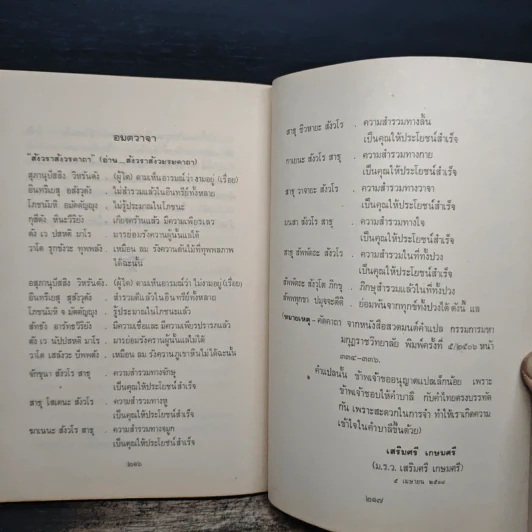 อมตวาจา
"สังวราสังวรคาถา" (อ่าน...สังวราสังวะระมคาถา)
สุภานุปัสสิง วิหรันตัง . (ผู้ใด) ตามเห็นอารมณ์ว่างามอยู่ (เรื่อย)
อินทริเยสุ อสังวุตัง . ไม่สำรวมแล้วในอินทรีย์ทั้งหลาย
โภชนัมหิ อมัตตัญญุง . ไม่รู้ประมาณในโภชนะ
กุสีตัง หีนะวีริยัง . เกียจคร้านแล้ว มีความเพียรเลว
ตัง เว ปสหติ มาโร . มารย่อมรังควานผู้นั้นแลได้
วาโต รุกขังวะ ทุพพลัง . เหมือน ลม รังควานต้นไม้ที่ทุพพลภาพ
ได้ฉะนั้น
อสุภานุปัสสิง วิหรันตัง . (ผู้ใด) ตามเห็นอารมณ์ว่า ไม่งามอยู่ (เรื่อย)
อินทริเยสุ สุสังวุตัง . สำรวมดีแล้วในอินทรีย์ทั้งหลาย
โภชนัมหิ จ มัตตัญญุง . รู้ประมาณในโภชนะแล้ว
สัทธัง อารัทธวีริยัง . มีความเชื่อและ มีความเพียรปรารภแล้ว
ตัง เว นัปปสหติ มาโร . มารย่อมรังควานผู้นั้นแลไม่ได้
วาโต เสลังวะ ปัพพตัง . เหมือน ลม รังควานภูเขาหินไม่ได้ฉะนั้น
จักขุนา สังวโร สาธุ . ความสำรวมทางจักษุ
เป็นคุณให้ประโยชน์สำเร็จ
สาธุ โสเตนะ สังวโร . ความสำรวมทางหู
เป็นคุณให้ประโยชน์สำเร็จ
ฆาเนนะ สังวโร สาธุ . ความสำรวมทางจมูก
เป็นคุณให้ประโยชน์สำเร็จ
๒๑๖
สาธุ ชิวหายะ สังวโร . ความสำรวมทางลิ้น
เป็นคุณให้ประโยชน์สำเร็จ
กาเยนะ สังวโร สาธุ . ความสำรวมทางกาย
เป็นคุณให้ประโยชน์สำเร็จ
สาธุ วาจายะ สังวโร . ความสำรวมทางวาจา
เป็นคุณให้ประโยชน์สำเร็จ
มนสา สังวโร สาธุ . ความสำรวมทางใจ
เป็นคุณให้ประโยชน์สำเร็จ
สาธุ สัพพัตถะ สังวโร . ความสำรวมในที่ทั้งปวง
เป็นคุณให้ประโยชน์สำเร็จ
สัพพัตถะ สังวุโต ภิกขุ . ภิกษุสำรวมแล้วในที่ทั้งปวง
สัพพทุกขา ปมุจจะตีติ . ย่อมพ้นจากทุกข์ทั้งปวงได้ ดังนี้ แล
(หมายเหตุ - คัดคาถา จากหนังสือสวดมนต์คำแปล กรรมการมหา
มกุฏราชวิทยาลัย พิมพ์ครั้งที่ ๕/๒๕๐๖ หน้า
๓๓๕-๓๓๖.
คำแปลนั้น ข้าพเจ้าขออนุญาตแปลเล็กน้อย เพราะ
ข้าพเจ้าชอบให้คำบาลี กับคำไทยตรงบรรทัด
กัน เพราะสะดวกในการจำ ทำให้เราเกิดความ
เข้าใจในคำบาลีขึ้นด้วย)
เสริมศรี เกษมศรี
(ม.ร.ว. เสริมศรี เกษมศรี)
๕ เมษายน ๒๕๑๗
๒๑๗